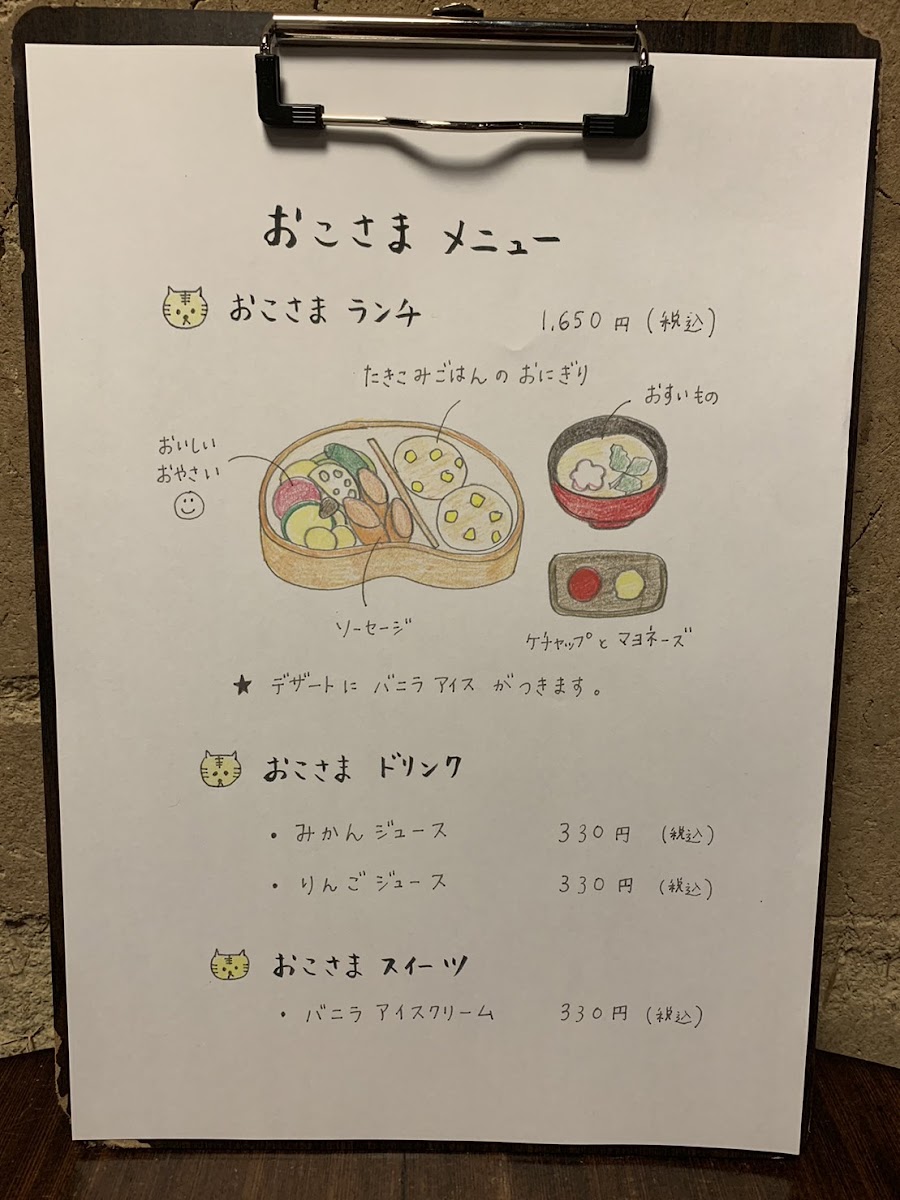 おこさま メニュー
おこさま ランチ 1,650円 (税込)
たきこみごはんの おにぎり
おすいもの
おいしい
おやさい
ソーセージ
ケチャップと マヨネーズ
★ デザートに バニラ アイス がつきます。
おこさま ドリンク
・みかん ジュース 330円 (税込)
・りんご ジュース 330円 (税込)
おこさま スイーツ
・バニラ アイスクリーム 330円 (税込)